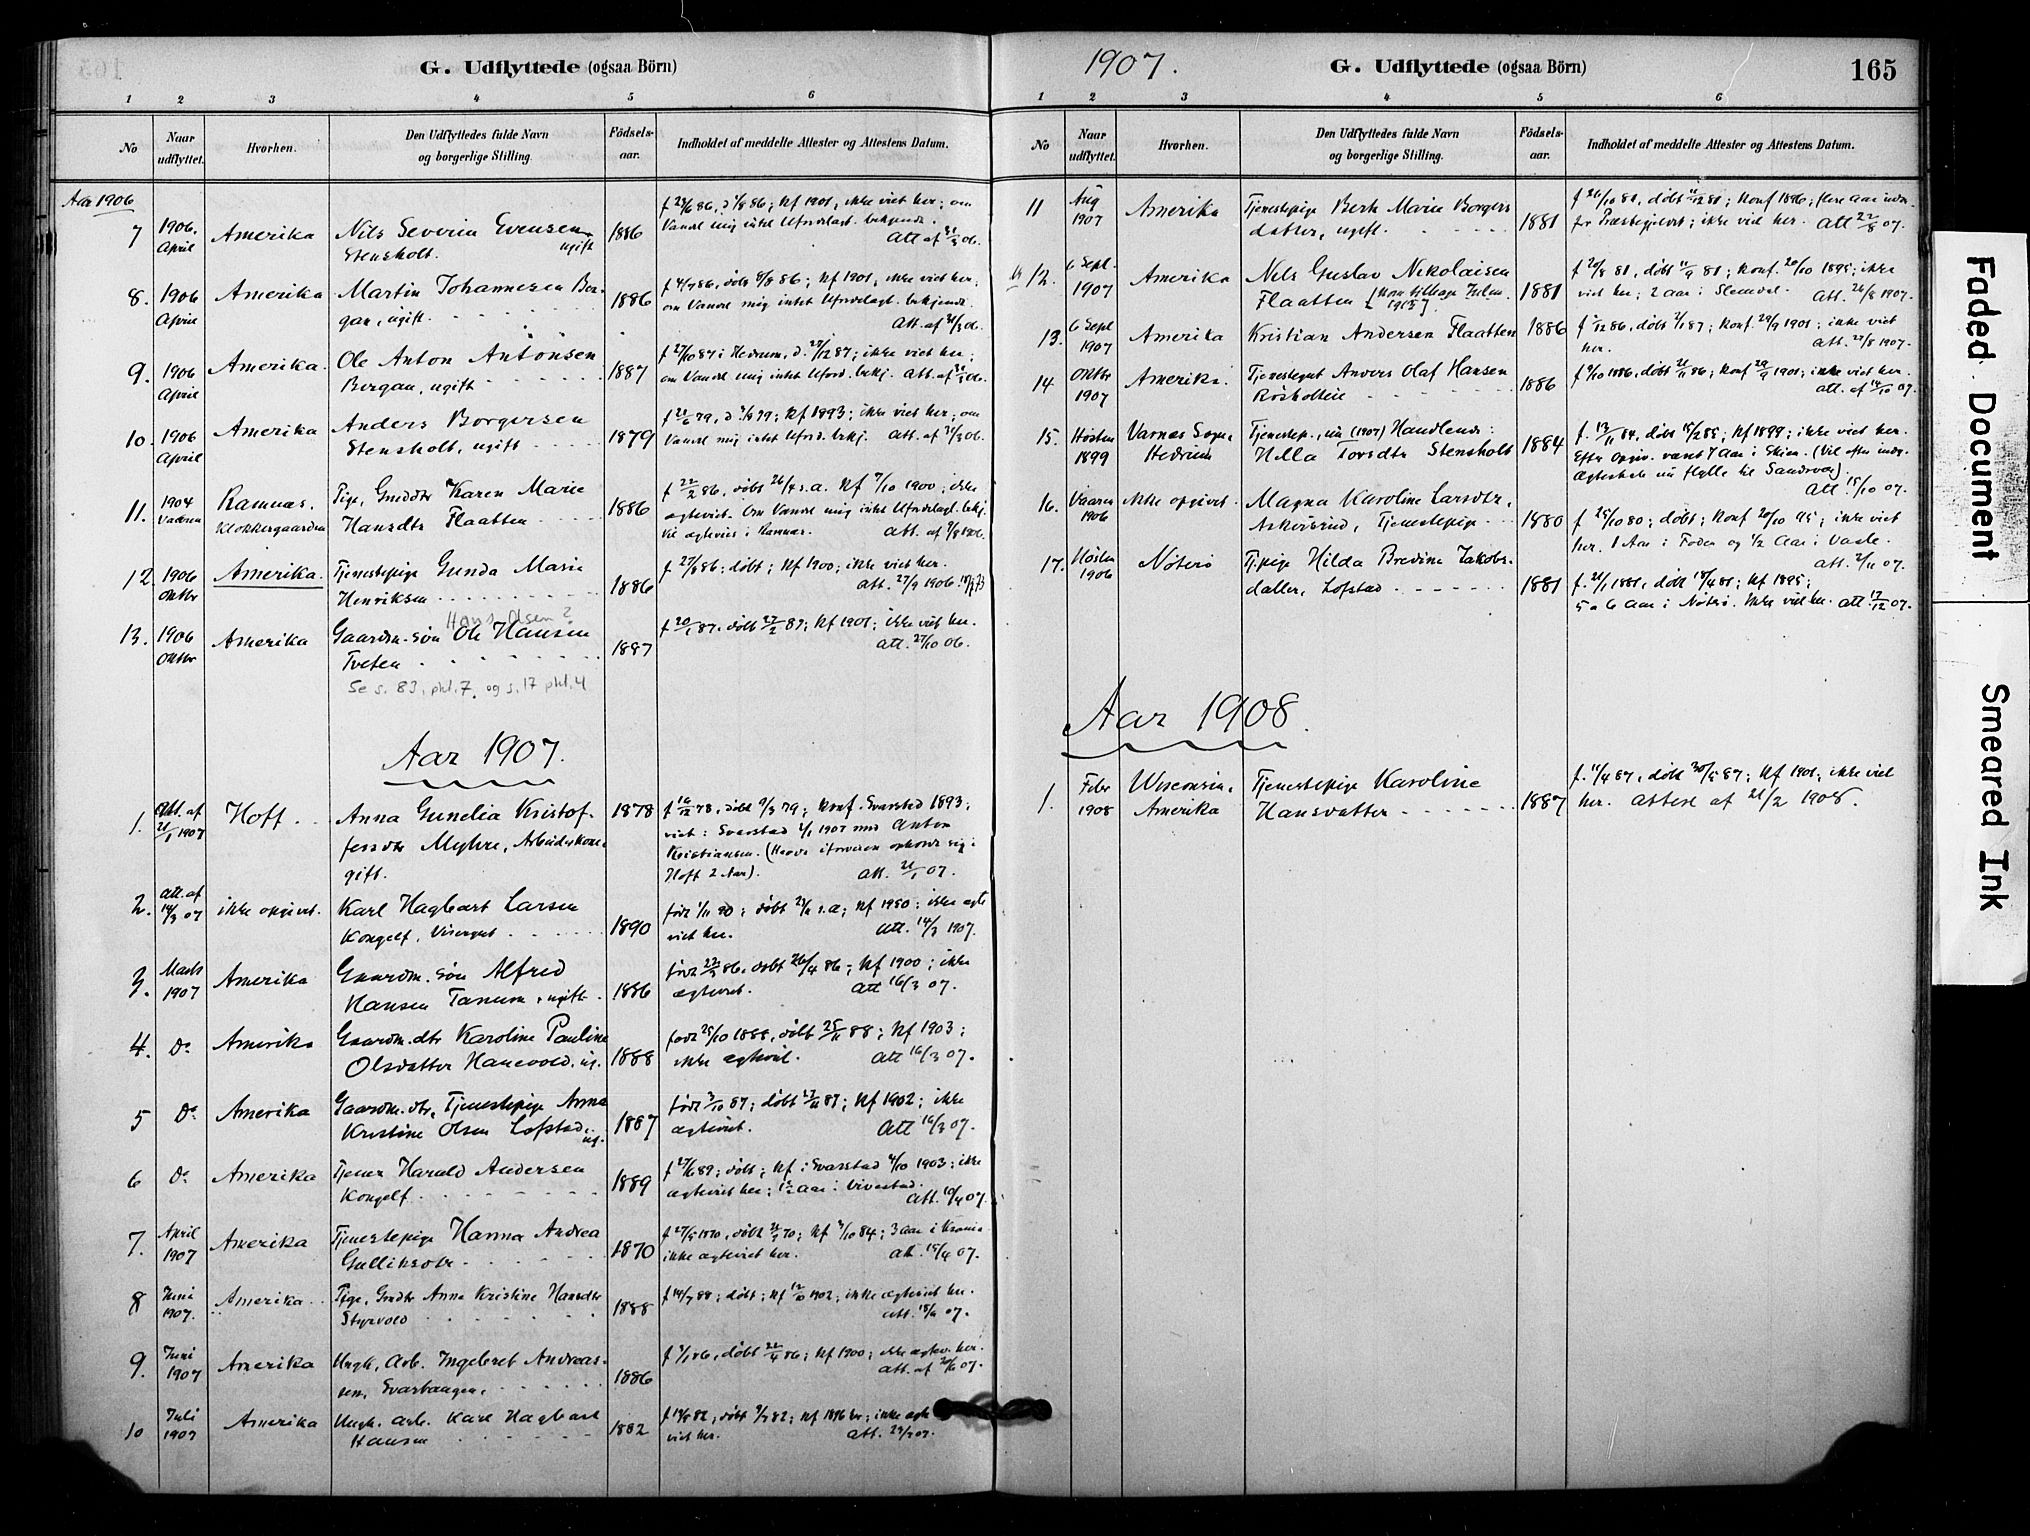 G. Udflyttede (ogsaa Börn)
1 2 3 4 5 6
No
Naar udflyttet.
Hvorhen.
Den Udflyttedes fulde Navn og borgerlige Stilling.
Födsels-aar.
Indholdet af meddelte Attester og Attestens Datum.
Aar 1906
7 1906. April Amerika Nils Severin Evensen
Stensholt. ugift 1886
ikke viet her; om
Vandel mig intet
Att af 06.
8. 1906 April Amerika Martin Johannesen Ber-
gan, ugift. 1886
døbt 8/8 86; Kf 1901, ikke viet her,
om Vandel mig intet ufordelagt. bekjendt.
Att. af 06.
9. 1906 April Amerika. Ole Anton Antonsen
Bergan, ugift 1887
f 27/10 87 i Hedrum, d. 27/12 87; ikke viet her;
om Vandel mig intet uford. bekj. Att. af 06.
10. 1906 April Amerika Anders Borgersen
Stensholt, ugift 1879
Kf 1893; ikke viet her; om
Vandel mig intet uford. bekj. Att. af 06.
11. 1904 Vaaren Ramnæs, Klokkergaarden
Pige, Gmddtr Karen Marie
Hansdtr Flaatten 1886
f 22/2 86, døbt 26/4 s.a. Kf 7/10 1900; ikke
ægteviet. Om Vandel mig intet Ufordelagt. bekj.
Vil ægtevies i Ramnæs. Att. af 1906.
12 1906 Oktbr Amerika. Tjenestepige Gunda Marie
Henriksen 1886
døbt; Kf 1900; ikke viet her.
Att. 27/9 1906.
Hans Olsen?
13. 1906 Oktbr Amerika Gaardm. søn Ole Hansen
Tveten 1887
f 20/1 87. døbt 27/2 87; Kf 1901; ikke viet her.
Att. 27/10 06.
Se s. 83, pkt. 7. og s. 17 pkt. 4
Aar 1907.
1. Att. af 21/1 1907 Hoff. Anna Gunelia Kristof-
fersdtr Myhre, Arbeiderkone,
gift. 1878
f 16/12 78, døbt 9/3 79; konf. Svarstad 1893;
viet i Svarstad 1907 med Anton
Kristiansen. (Havde iforveien opholdt sig i
Hoff 2 Aar). Att. 21/1 07.
2. Att. af 14/3 07 ikke opgivet. Karl Hagbart Larsen
Kongelf, Visergut 1890
født 1/11 90; døbt s.a; ikke ægte
viet her. Att. 14/3 1907.
3. Marts 1907 Amerika Gaardm. søn Alfred
Hansen Tanum, ugift 1886
født 22/2 86, døbt 26/4 86; Kf 1900; ikke
ægteviet. Att 16/3 07.
4. Do Amerika Gaardm. dtr Karoline Pauline
Olsdatter Hanevold. ug. 1888
født 25/10 1888, døbt 25/11 88; Kf 1903;
ikke ægteviet. Att 16/3 07.
5 Do Amerika Gaardm. dtr, Tjenestepige Anna
Kristine Olsen Lofstad, ug. 1887
født 3/10 87; døbt 27/11 87; Kf 1902; ikke
ægteviet. Att 16/3 07.
6 Do Amerika Tjener Harald Andersen
Kongelf. 1889
døbt; Kf i Svarstad 4/10 1903; ikke
ægteviet her; Aar i Vivestad.
Att. 10/4 07.
7. April 1907 Amerika Tjenestepige Hanna Andrea
Gulliksdtr. 1870
Kf 84; 3 Aar i Krania
ikke ægteviet her. Att. 15/4 07.
8 Juni 1907. Amerika Pige, Gmdtr Anna Kristine Hansdtr
Styrvold 1888
f 14/7 88; døbt; Kf 12/10 1902; ikke ægteviet her.
Att. 07.
9. Juni 1907 Amerika Ungk, Arb. Ingebret Andreas-
sen, Svartangen. 1886
Kf 1900; ikke ægtev. her.
Att. af 07.
10 Juli 1907 Amerika Ungk. Arb. Karl Hagbart
Hansen 1882
Kf 1896 ikke ægte
viet her. Att. 07.
1907.
G. Udflyttede (ogsaa Börn)
165
1 2 3 4 5 6
No
Naar udflyttet.
Hvorhen.
Den Udflyttedes fulde Navn og borgerlige Stilling.
Födsels-aar.
Indholdet af meddelte Attester og Attestens Datum.
11 Aug 1907 Amerika Tjenestepige Berte Marie Borgers
datter, ugift. 1881
flere aar uden-
for Præstegjeldet; ikke viet her. Att 22/8 07.
12. 6 Sept. 1907 Amerika Nils Gustav Nikolaisen
Flaatten 1881
ikke
viet her; 2 aar i Slemdal. Att. 26/8 1907.
13. 6 Sept 1907 Amerika Kristian Andersen Flaatten 1886
konf. 29/9 1901; ikke viet
her. Att. 27/8 1907.
14 Oktbr 1907 Amerika. Tjenestegut Anders Olaf Hansen
Rösholteie 1886
konf 29/9 1901; ikke viet her.
Att. af 14/10 07.
15. Høsten 1899 Varnæs Sogn, Hedrum
Tjenestep., nu (1907) Handlende:
Hella Torsdtr Stensholt 1884
f. 13/11 84, døbt 15/2 85; Kf 1899; ikke viet her.
Efter Opgiv. været 7 Aar i Skien. (Vil efter indg.
Ægteskab nu flytte til Sandsvær).
Att. 15/10 07.
16. Vaaren 1906 ikke opgivet. Magna Karoline Larsdtr,
Askjerud, Tjenestepige 1880
f 25/10 80; døbt; Konf 20/10 95; ikke viet
her. 1 Aar i Foden og 1/2 Aar i Vaale.
Att. 07.
17. Høsten 1906 Nøterø Tj.pige Hilda Bredine Jakobs-
datter, Lofstad 1881
Kf 1895;
5 a 6 Aar i Nøterø. Ikke viet her. Att. 17/12 07.
Aar 1908.
1. Febr 1908 Wisconsin, Amerika
Tjenestepige Karoline
Hansdatter 1887
f. 11/4 87, døbt 30/5 87; Kf 1901; ikke viet
her. Attest af 21/2 1908.
Faded Document
Smeared Ink